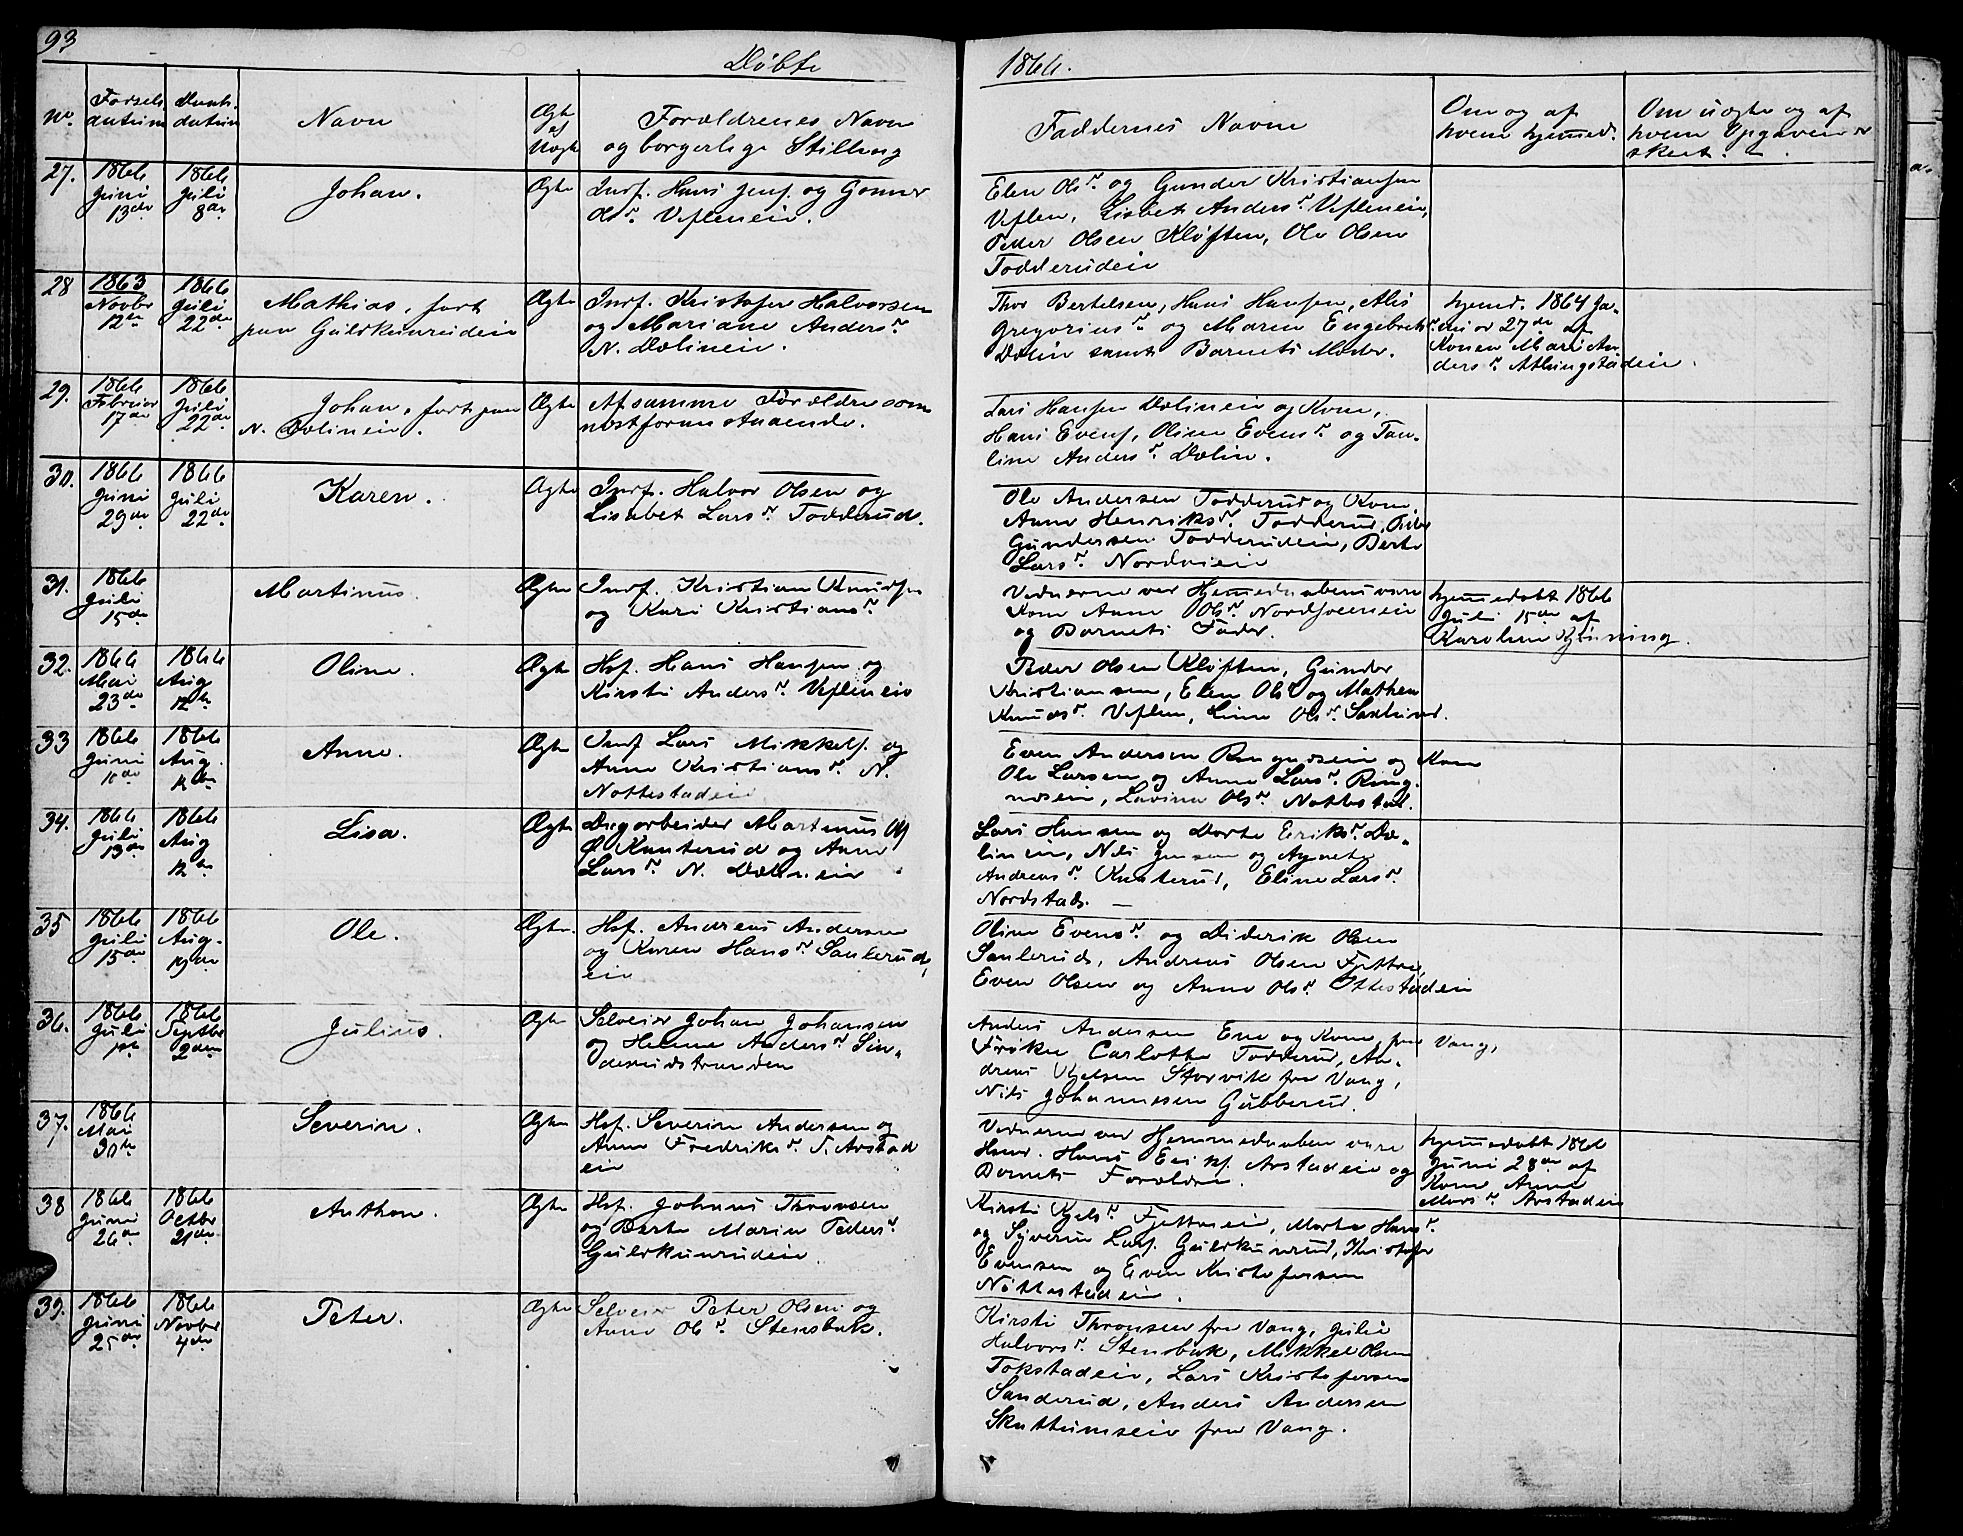 93
Døbte
1866.
No.
Førsels datum
Daabs datum
Navn
Ægte el Uægte
Forældrenes Navn
og borgerlige Stilling
Faddernes Navne
Om og af
hvem hjemmed.
Om uægte og af
hvem Opgaven er
skeet.
27.
1866 Juni 13de
1866 Juli 8de
Johan.
Ægte
Indf. Hans Jens. og Gonner
Olsr. Vefleneie.
Elen Olsr. og Gunder Kristiansen
Veflen, Lisbet Andersr. Vefleneie,
Peder Olsen Kløften, Ole Olsen
Todderudeie
28
1863 Novbr 12te
1866 Juli 22de
Mathias, født
paa Gulskunrudeie
Ægte
Indf. Kristofer Halvorsen
og Mariane Andersr.
N. Dælineie.
Thor Bertelsen, Hans Hansen, Alis
Gregoriusr. og Maren Engebretsr.
Dælin samt Barnets Moder.
hjemd. 1864 Ja-
nuar 27de af
Konen Mari An
dersr. Athingstadeie.
29.
1866 Februar 17de
1866 Juli 22de
Johan, født paa
N. Dælineie.
Ægte
Af samme Forældre som
næstforanstaaende.
Lars Hansen Dælineie og Kone,
Hans Evens., Oline Evensr. og Pau-
line Andersr. Dælin.
30.
1866 Juni 29de
1866 Juli 22de
Karen.
Ægte
Indf. Halvor Olsen og
Lisabet Larsr. Todderud.
Ole Andersen Todderud og Kone
Anne Henriksr. Todderud, Peder
Gundersen Todderudeie, Berte
Larsr. Nordvieie
31.
1866 Juli 15de
Martinus.
Ægte
Indf. Kristian Knudsen
og Kari Kristiansr.
Vidnerne ved Hjemmedaaben vare
Kone Anne Olsr. Nordsveeneie
og Barnets Fader.
hjemmedøbt 1866
Juli 15de af
Karoline Kjønning.
32.
1866 Mai 23de
1866 Aug 12te
Oline.
Ægte
Hsf. Hans Hansen og
Kirsti Andersr. Vefleneie
Peder Olsen Kløften, Gunder
Kristiansen, Elen Olsr. og Mathea
Knudsr. Veflen, Line Olsr. Saxlund.
33
1866 Juni 10de
1866 Aug. 12te
Anne.
Ægte
Indf Lars Mikkels. og
Anne Kristiansr. N.
Nottestadeie
Even Andersen Ringnæseie og Kone
Ole Larsen og Anne Larsr. Ring-
næseie, Lovina Olsr. Nottestad.
34.
1866 Juli 13de
1866 Aug 12te
Lisa.
Ægte
Dagarbeider Martinus Ols
Ø. Knuterud og Anne
Larsr. N. Dælineie
Lars Hansen og Dorte Eriksr. Dæ-
lineie, Nils Jensen og Agnete
Andreasr. Knuterud, Eline Larsr.
Nordstad.
35
1866 Juli 15de
1866 Aug. 19de
Ole.
Ægte.
Hsf. Andreas Andersen
og Karen Hansr. Saulerud,
eie
Oline Evensr. og Diderik Olsen
Saulerud, Andreas Olsen Fjettre,
Even Olsen og Anne Olsr. Ottestadeie
36.
1866 Juli 1ste
1866 Septbr 2den
Julius.
Ægte
Selveier Johan Johansen
og Helene Andersr. Sin-
derudstranden
Anders Andersen Ene og Kone fra Vang,
Frøken Carlotte Todderud, An-
dreas Kjelsen Storvik fra Vang,
Nils Johannesen Gubberud.
37.
1866 Mai 30te
Severin.
Ægte
Hsf. Severin Andersen og
Anne Fredriksr. S. Arstad
eie
Vidnerne ved Hjemmedaaben vare
Hans Eriks. Arstadeie og
Barnets Forældre.
hjemmedøbt 1866
Juni 28de af
Kone Anne
Marsr. Arstadeie
38
1866 Juni 26de
1866 Octbr 21de
Anthon.
Ægte
Hsf. Johans Thronsen
og Berte Marie Pedersr.
Gulskunrudeie.
Kirsti Kjelsr. Fjettreeie, Marte Hansr.
og Syverin Lars. Gulskunrud, Kristofer
Evensen og Even Kristofersen
Nottestadeie.
39.
1866 Juni 25de
1866 Novbr 4de
Peter.
Ægte
Selveier Peter Olsen og
Anne Olsr. Stensbak.
Kirsti Thronsen fra Vang, Julie
Halvorsr. Stensbak, Mikkel Olsen
Tokstadeie, Lars Kristofersen
Sanderud, Anders Andersen
Skattumseie fra Vang.